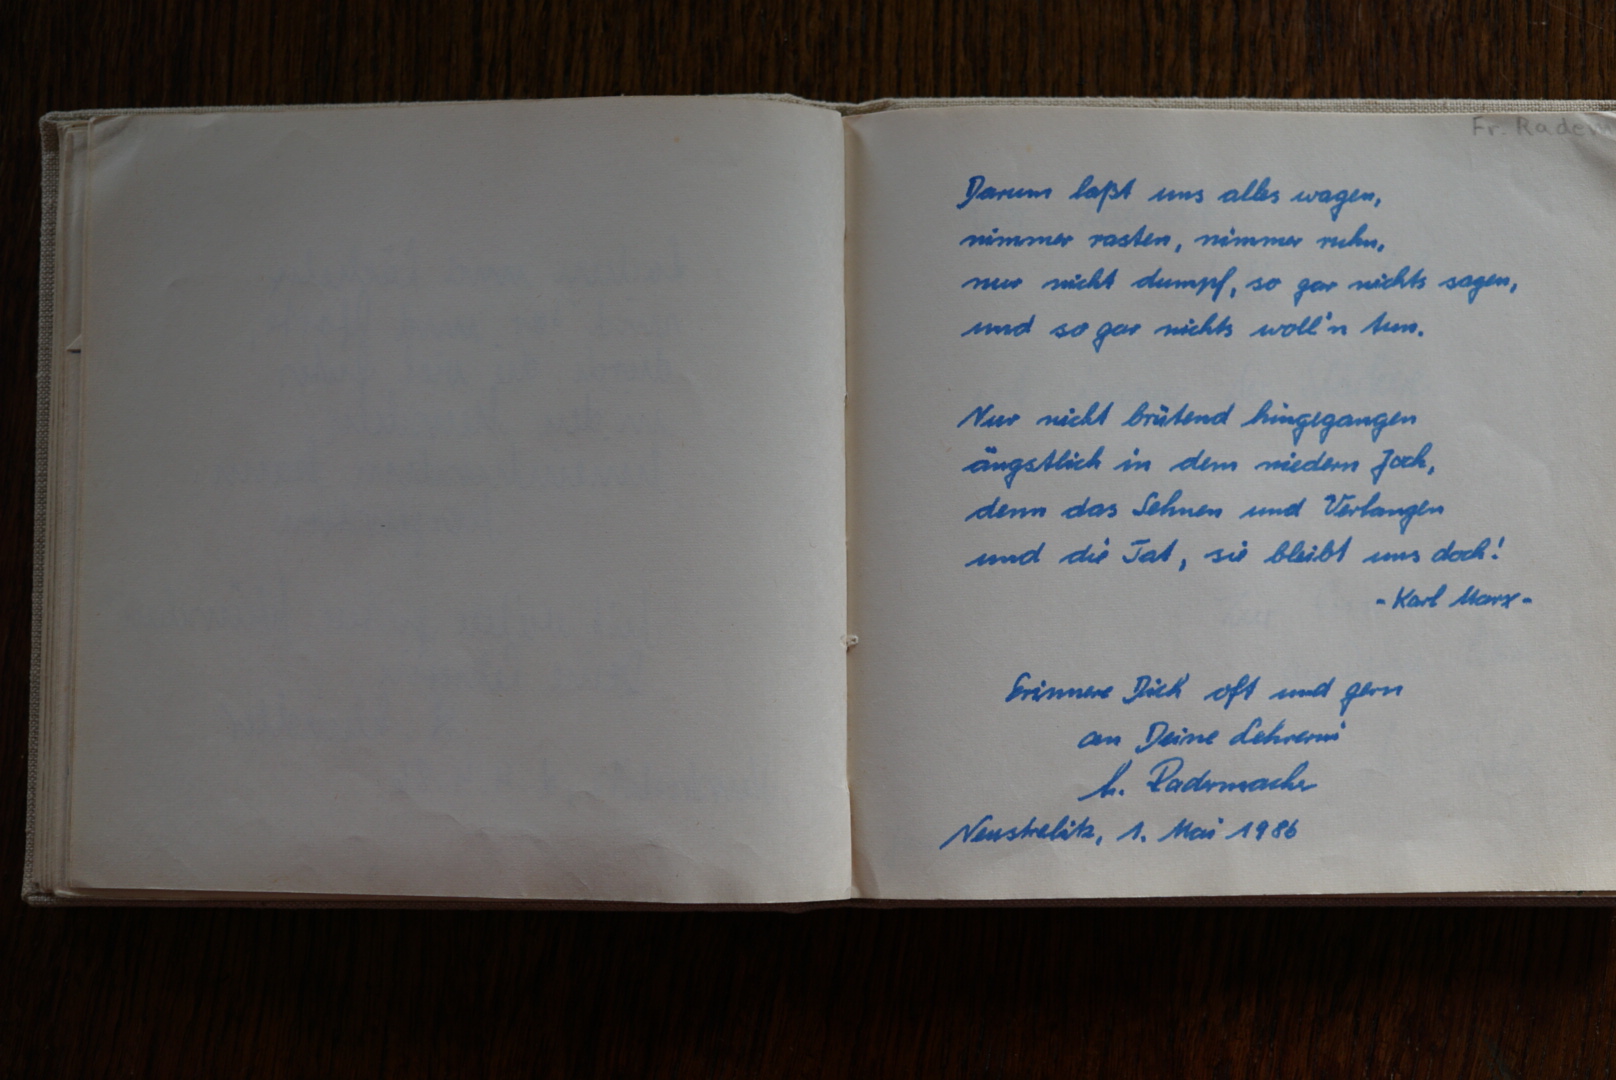 Fr. Radem
Darum laßt uns alles wagen,
nimmer rasten, nimmer ruhn,
nur nicht dumpf, so gar nichts sagen,
und so gar nichts woll'n tun.
Nur nicht brütend hingegangen
ängstlich in dem niedern Joch,
denn das Sehnen und Verlangen
und die Tat, sie bleibt uns doch!
- Karl Marx -
Erinnere Dich oft und gern
an Deine Lehrerin
Radermacher
Neustrelitz, 1. Mai 1986